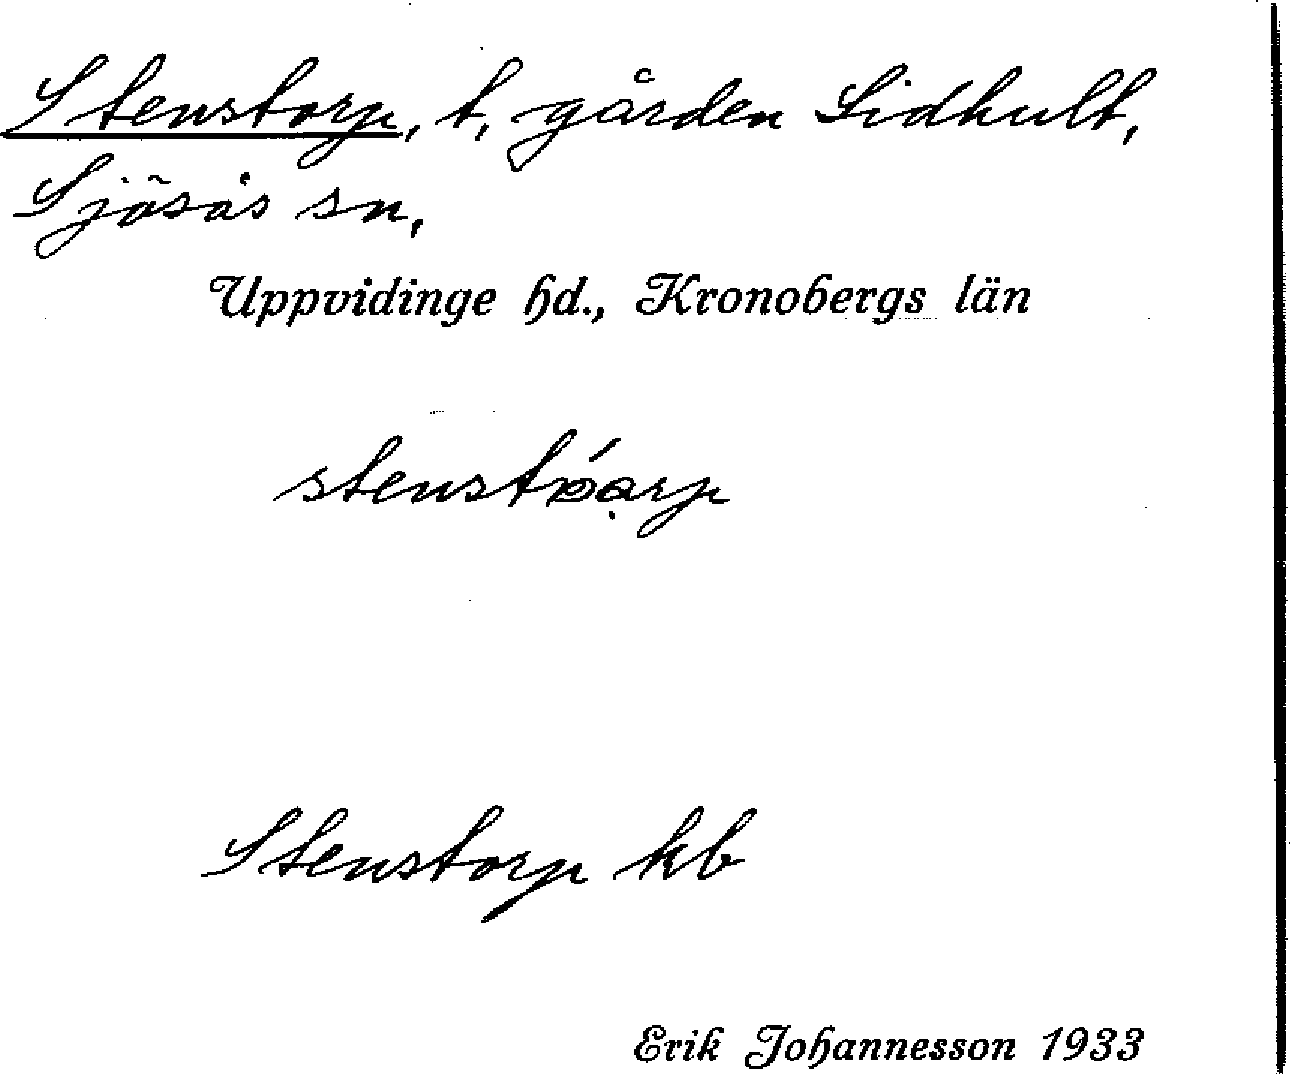 Stenstorp, t, gården Lidhult,
Sjösås sn,
Uppvidinge hd., Kronobergs län
Stenstorp kb
Erik Johannesson 1933